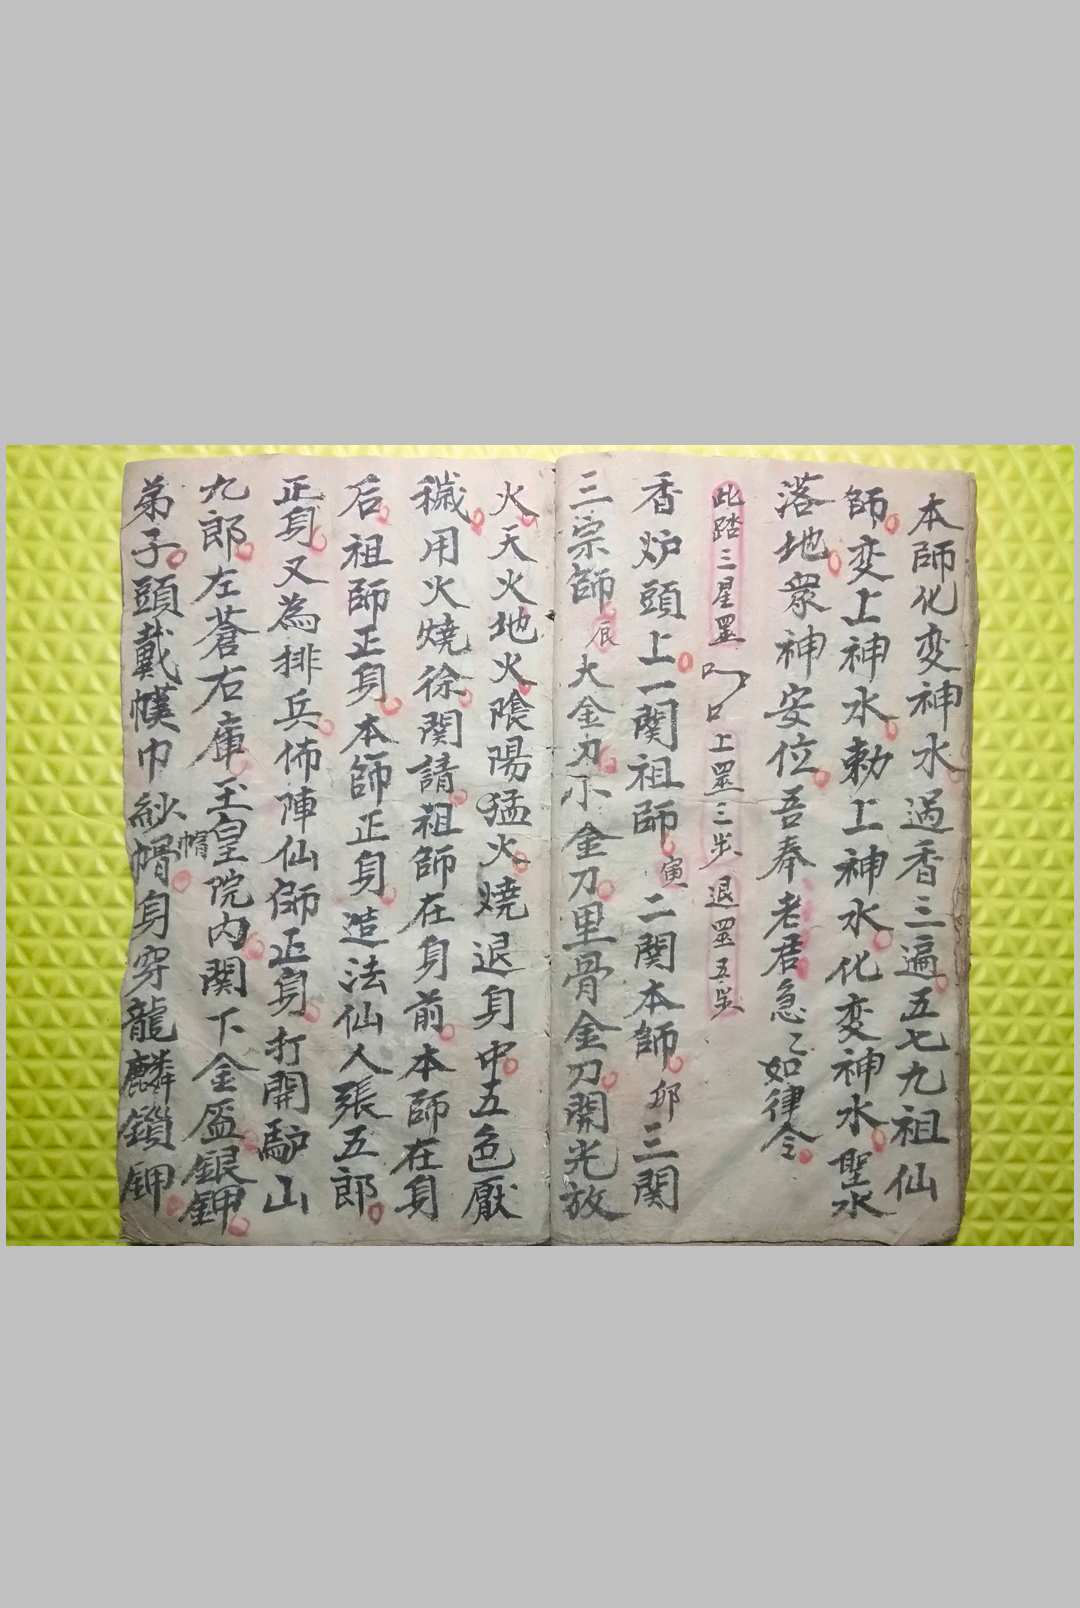 本師化变神水過香三遍五七九祖仙
師变上神水勅上神水化变神水聖水
落地衆神安位吾奉老君急〻如律令
此踏三星罡
口上罡三步退罡五步
香炉頭上一関祖師寅二関本師卯三関
三宗師辰大金刀小金刀里骨金刀開光放
火天火地火陰陽猛火燒退身中五色厭
穢用火燒徐関請祖師在身前本師在身
后祖師正身本師正身造法仙人張五郎
正身又為排兵佈陣仙師正身打開馿山
九郎左蒼右庫玉皇院内関下金盔銀鉀
帽
弟子頭戴幞巾紗㡌身穿龍麟鎖鉀